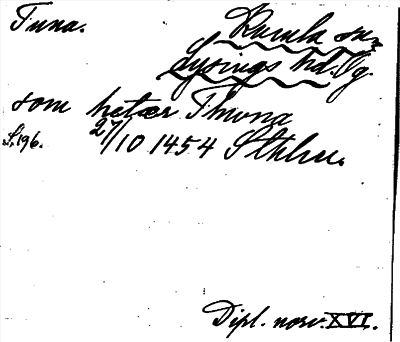 Tuna. Kumla sn,
Lysings hd. Ög.
som hetær Thuna
S. 196. 27/10 1454 Sthlm.
Dipl. norv. XVI.